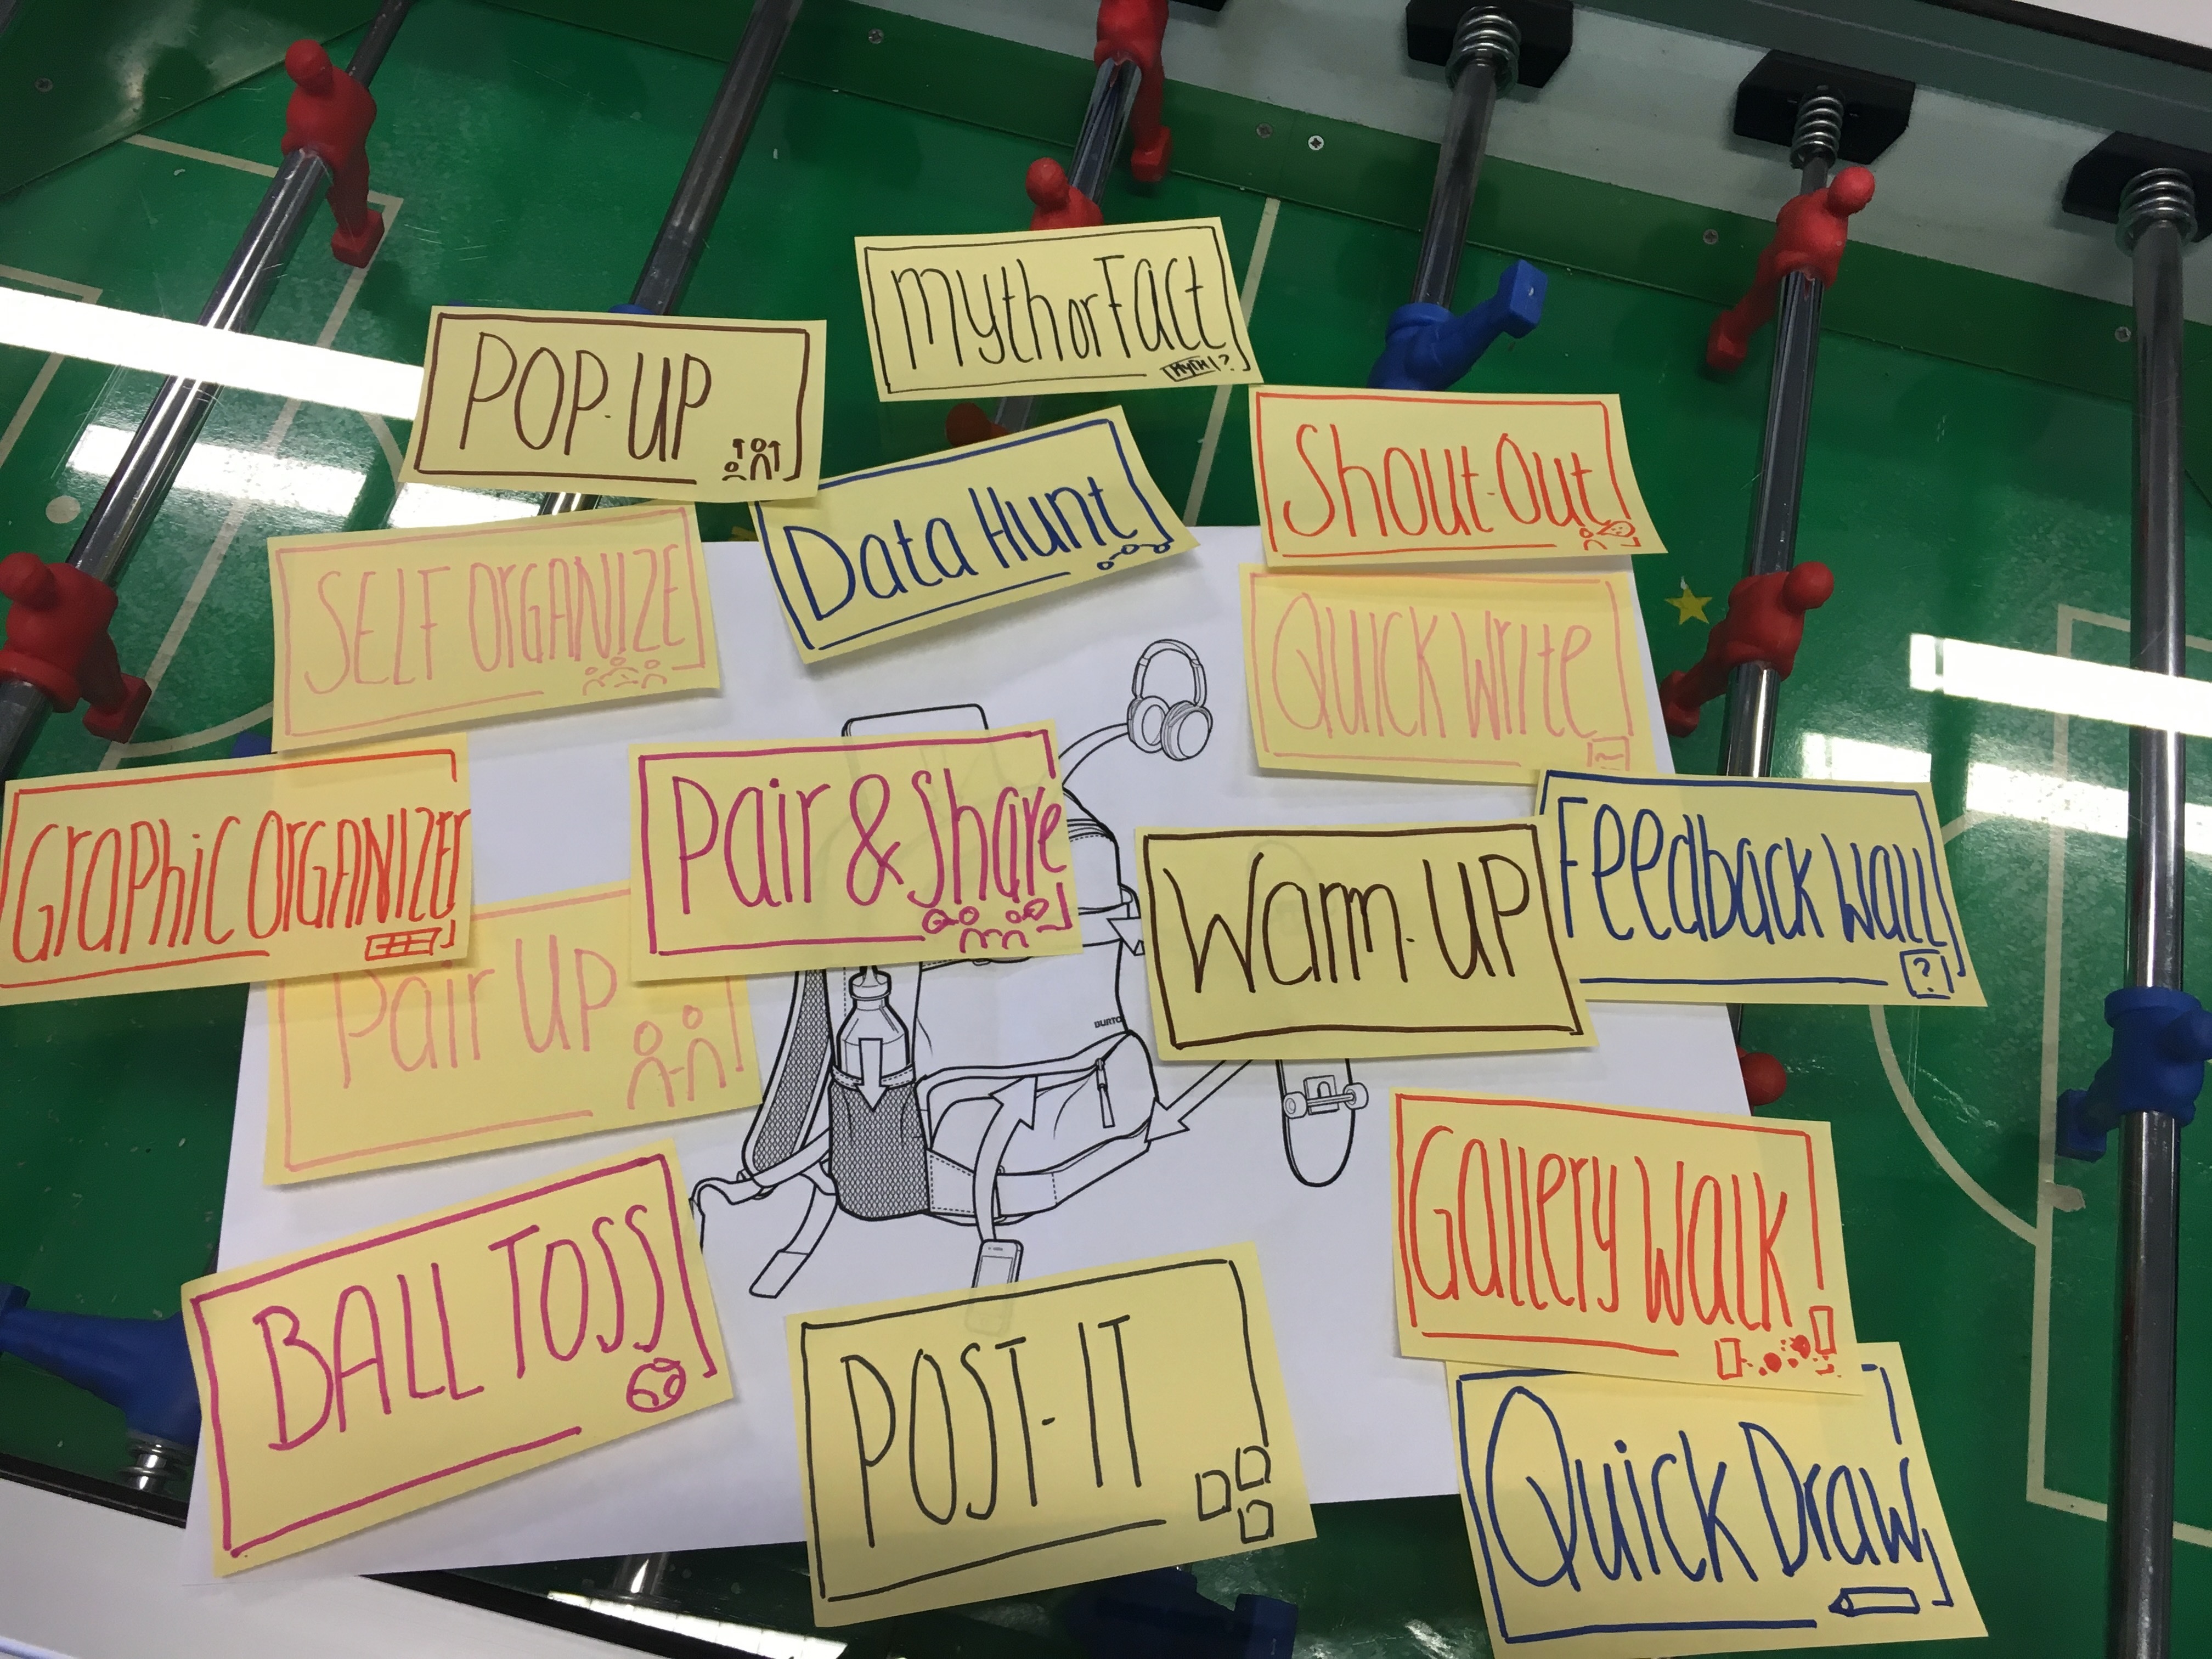 Myth or Fact
MYTH ?
POP-UP
Shout-Out
Data Hunt
SELF OrGANIZE
Quick Write
GraPhic OrGANIZEr
Pair & Share
Feedback Wall
?
Warm-UP
Pair UP
BURTO
Gallery Walk
BALL TOSS
POST-IT
Quick Draw